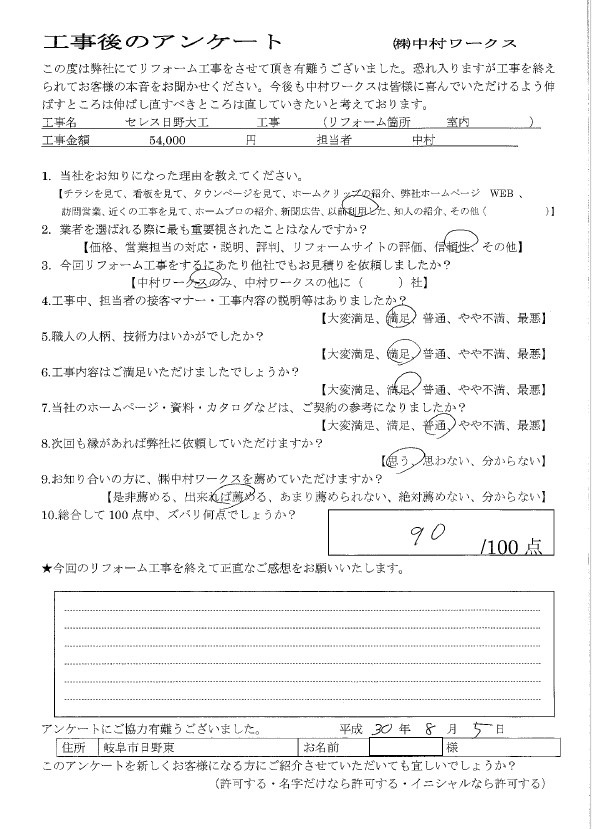 工事後のアンケート ㈱中村ワークス
この度は弊社にてリフォーム工事をさせて頂き有難うございました。恐れ入りますが工事を終え
られてお客様の本音をお聞かせください。今後も中村ワークスは皆様に喜んでいただけるよう伸
ばすところは伸ばし直すべきところは直していきたいと考えております。
工事名 セレス日野大工 工事 (リフォーム箇所 室内 )
工事金額 54,000 円 担当者 中村
1. 当社をお知りになった理由を教えてください。
【チラシを見て、看板を見て、タウンページを見て、ホームクリップの紹介、弊社ホームページ WEB 、
訪問営業、近くの工事を見て、ホームプロの紹介、新聞広告、以前利用した、知人の紹介、その他 ( )】
2. 業者を選ばれる際に最も重要視されたことはなんですか?
【価格、営業担当の対応・説明、評判、リフォームサイトの評価、信頼性、その他】
3. 今回リフォーム工事をするにあたり他社でもお見積りを依頼しましたか?
【中村ワークスのみ、中村ワークスの他に ( ) 社】
4.工事中、担当者の接客マナー・工事内容の説明等はありましたか?
【大変満足、満足、普通、やや不満、最悪】
5.職人の人柄、技術力はいかがでしたか?
【大変満足、満足、普通、やや不満、最悪】
6.工事内容はご満足いただけましたでしょうか?
【大変満足、満足、普通、やや不満、最悪】
7.当社のホームページ・資料・カタログなどは、ご契約の参考になりましたか?
【大変満足、満足、普通、やや不満、最悪】
8.次回も縁があれば弊社に依頼していただけますか?
【思う、思わない、分からない】
9.お知り合いの方に、㈱中村ワークスを薦めていただけますか?
【是非薦める、出来れば薦める、あまり薦められない、絶対薦めない、分からない】
10.総合して 100 点中、ズバリ何点でしょうか?
90 /100 点
★今回のリフォーム工事を終えて正直なご感想をお願いいたします。
アンケートにご協力有難うございました。 平成 30 年 8 月 5 日
住所 岐阜市日野東 お名前 様
このアンケートを新しくお客様になる方にご紹介させていただいても宜しいでしょうか?
(許可する・名字だけなら許可する・イニシャルなら許可する)